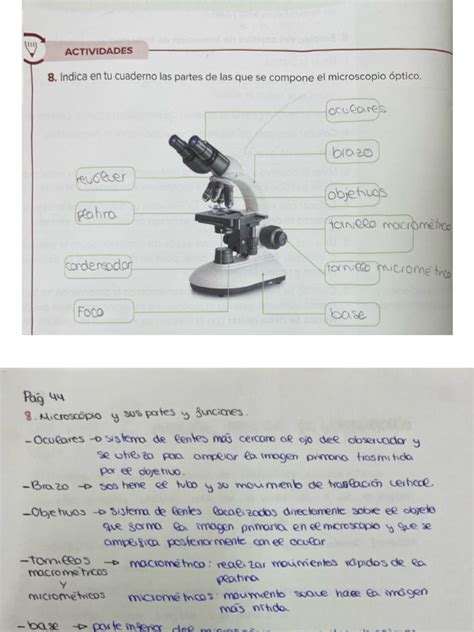 ACTIVIDADES
8. Indica en tu cuaderno las partes de las que se compone el microscopio óptico.
oculares
brazo
revolver
objetivos
platina
tornillo macrométrico
condensador
tornillo micrométrico
Foco
base
Pág 44
8. Microscopio y sus partes y funciones.
- Oculares → sistema de lentes más cercano al ojo del observador y
se utiliza para ampliar la imagen primaria trasmitida
por el objetivo.
- Brazo → sostiene el tubo y su movimiento de traslación vertical.
- Objetivos → sistema de lentes localizados directamente sobre el objeto
que forma la imagen primaria en el microscopio y que se
amplifica posteriormente con el ocular.
- Tornillos → macrométrico: realizar movimientos rápidos de la
macrométricos platina
y
micrométricos micrométricos: movimiento suave hace la imagen
más nítida.
- base → parte inferior del